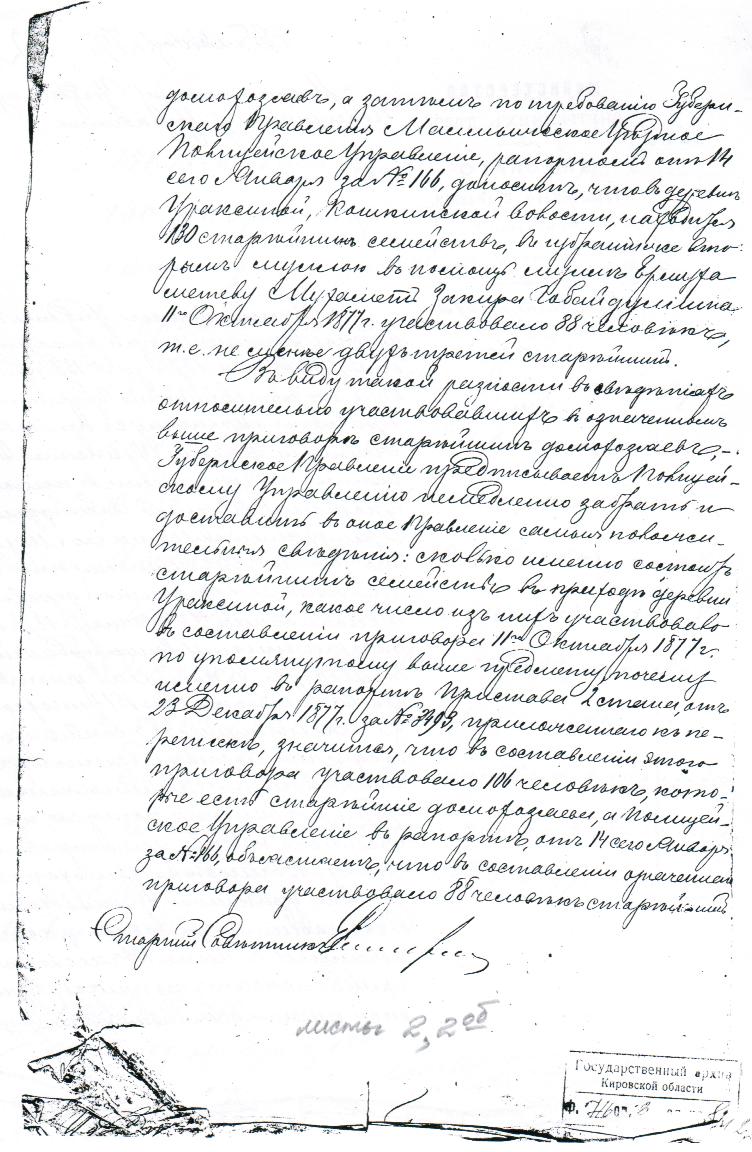 домохозяевъ, а затѣмъ по требованію Губерн-
скаго Правленія Малмыжское Уѣздное
Полицейское Управленіе, рапортомъ отъ 14
сего Января за № 166, доноситъ, что въ деревнѣ
Ураксиной, Кошкинской волости, находится
130 старѣйшинъ семействъ, въ избраніи же вто-
рымъ муллою въ помощь муллѣ Ермуха
метеву Мухаметъ Закира Хабайдуллина
11го Октября 1877 г. участвовало 88 человѣкъ,
т.е. не менѣе двухъ третей старѣйшинъ.
Въ виду такой разности въ свѣдѣніяхъ
относительно участвовавшихъ въ означенномъ
выше приговорѣ старѣйшинъ домохозяевъ, -
Губернское Правленіе предписываетъ Полицей-
скому Управленію немедленно забрать и
доставить въ оное Правленіе самыя положи-
тельныя свѣдѣнія: сколько именно состоитъ
старѣйшинъ семействъ въ приходѣ деревни
Ураксиной, какое число изъ нихъ участвовало
въ составленіи приговора 11го Октября 1877 г.
по упомянутому выше предмету почему
именно въ рапортѣ Пристава 2 стана, отъ
23 Декабря 1877 г. за № 3499, приложеннаго къ пе-
репискѣ, значится, что въ составленіи этого
приговора участвовало 106 человѣкъ, кото-
рые есть старѣйшіе домохозяева, а Полицей-
ское Управленіе въ рапортѣ, отъ 14 сего Января
за № 166, объясняетъ, что въ составленіи означеннаго
приговора участвовало 88 человѣкъ старѣйшинъ.
Старшій Совѣтникъ
листы 2, 2об
Государственный архив
Кировской области
Ф.